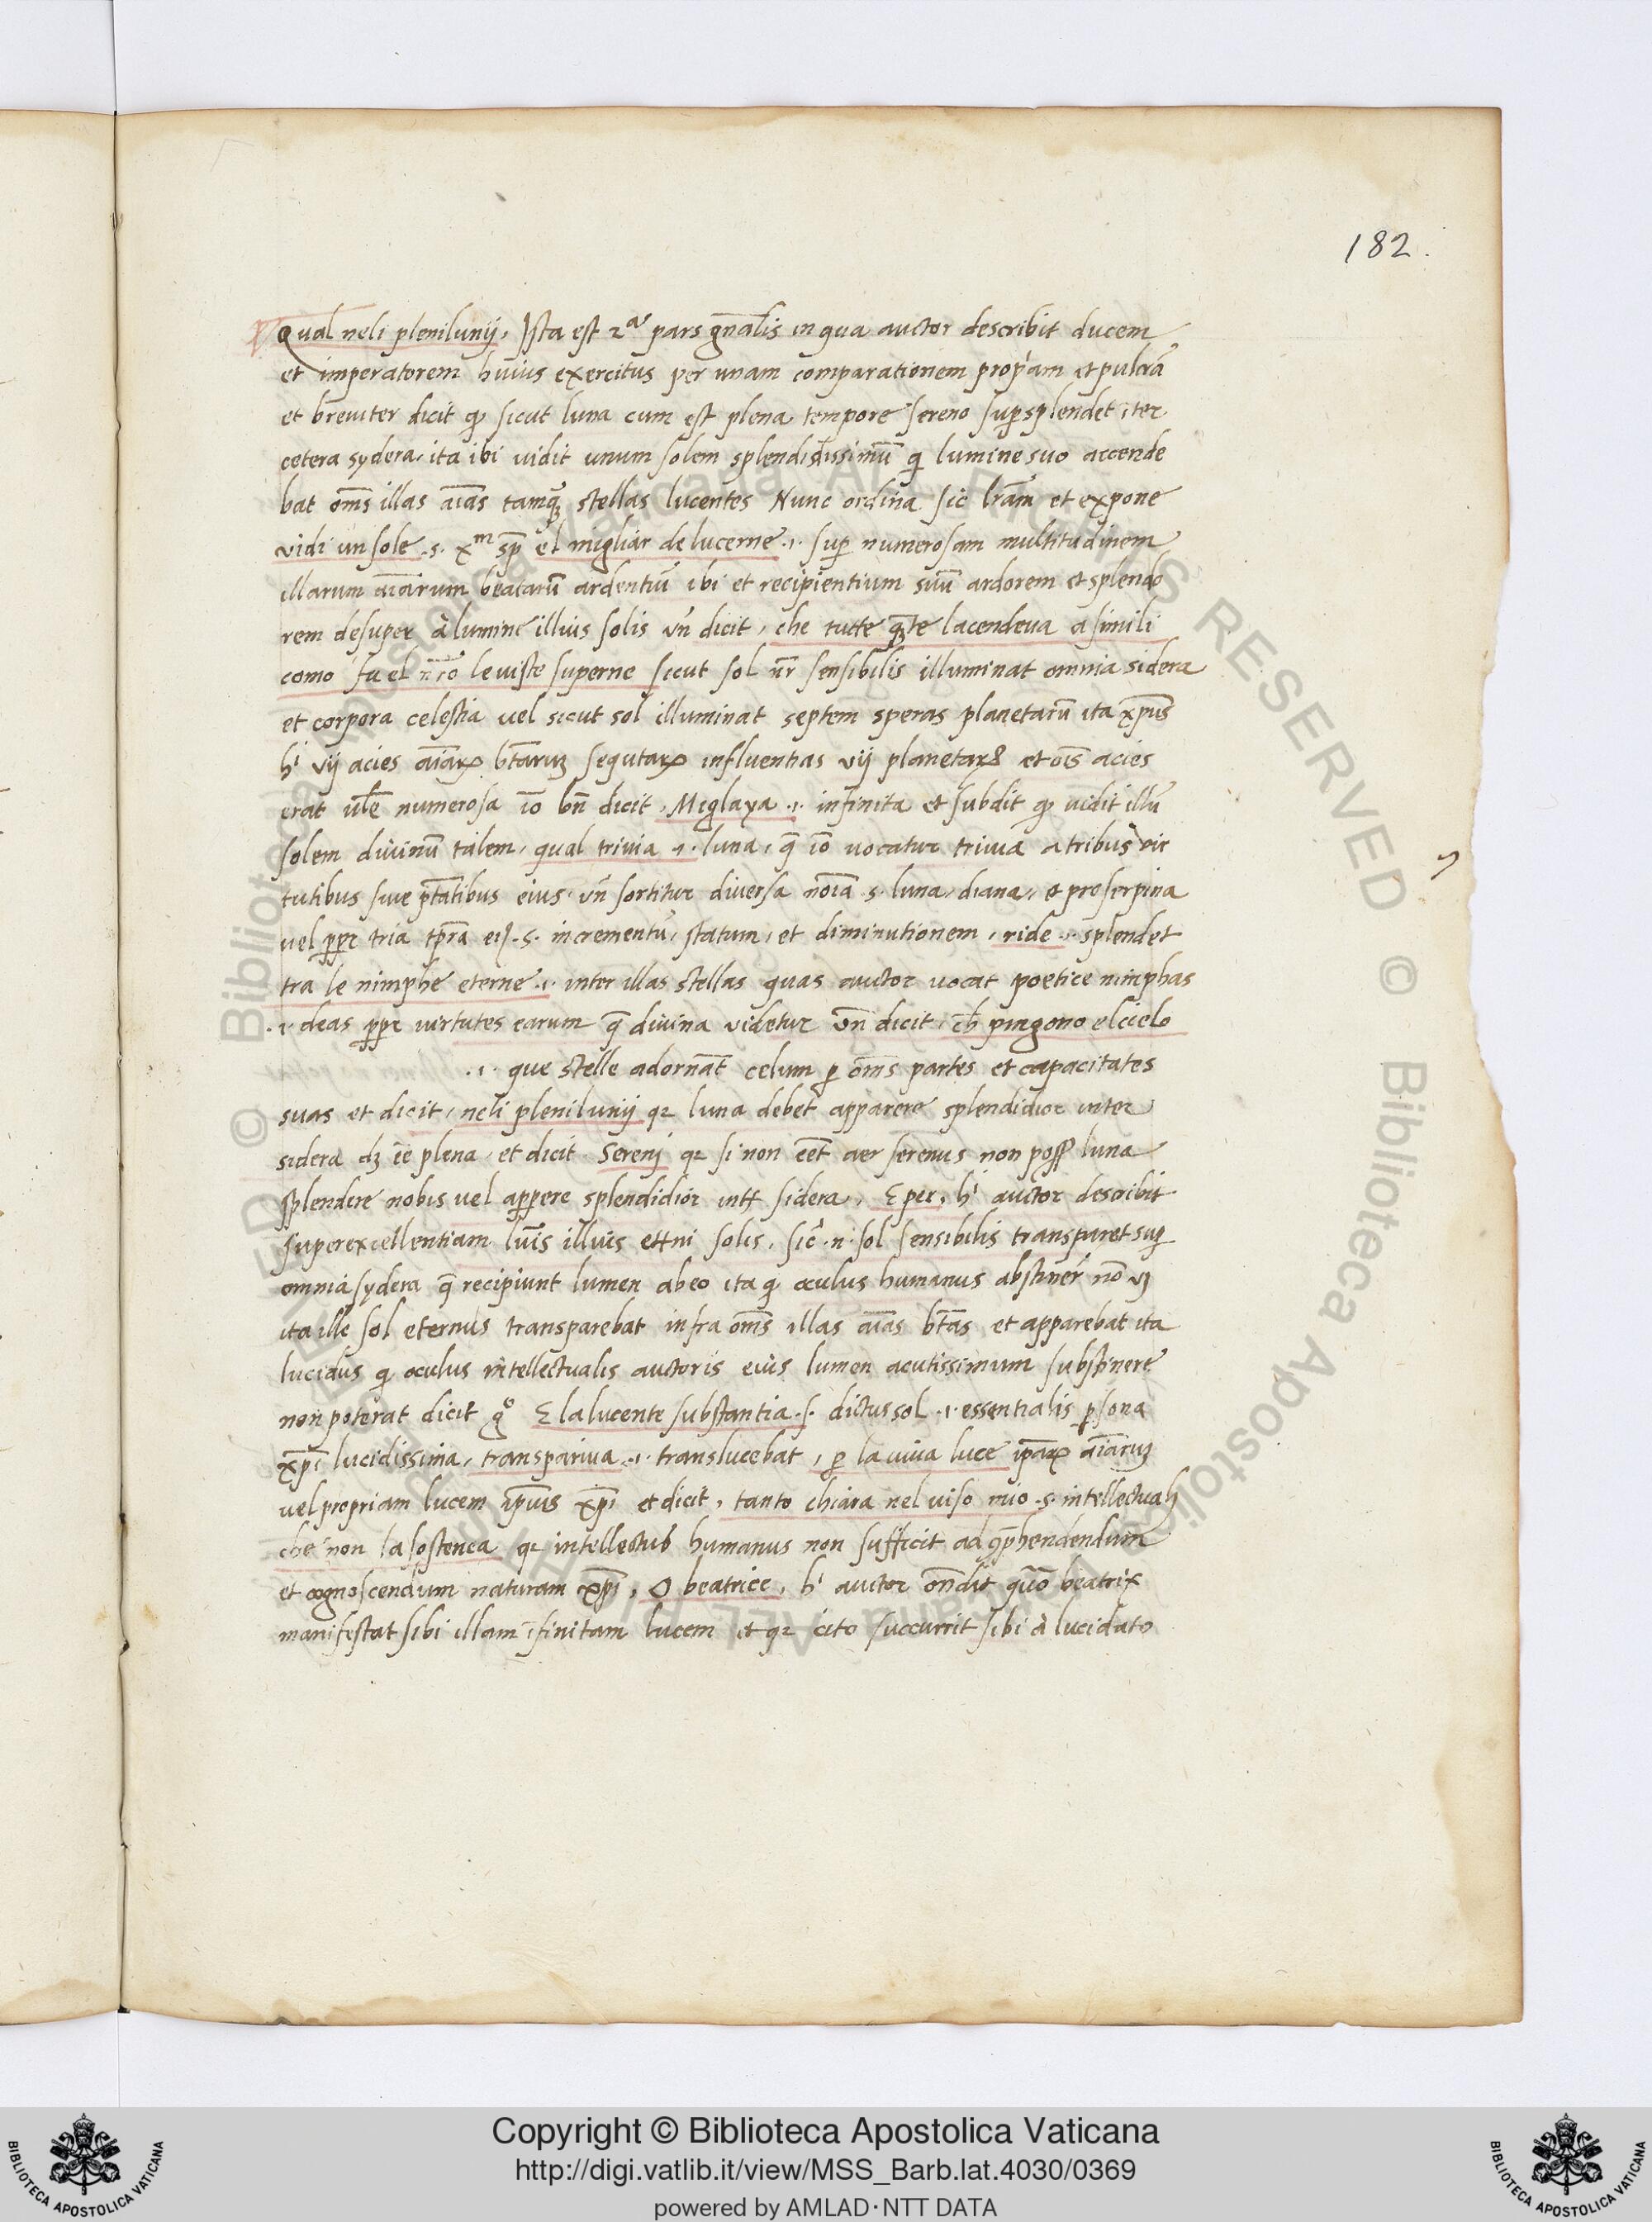 182.
Qual neli plenilunij, Jsta est 2ᵃ pars gn̄alis in qua auctor describit ducem
et imperatorem huius exercitus per unam comparationem prop'am et pulcrā
et breuiter dicit qḋ sicut luna cum est plena tempore sereno sup̱splendet īter
cetera sydera, ita ibi vidit unum solem splendidissimū qi lumine suo accende
bat om̄s illas aīas tamqꝫ stellas lucentes Nunc ordina sic lr̄am et expone
vidi un sole .s. xᵐ sp̄ el migliar de lucerne .i. sup̱ numerosam multitudinem
illarum aīarum beatarū ardentiū ibi et recipientium suū ardorem et splendo
rem desuper à lumine illius solis vn̄ dicit, che tutte qꝫte lacendeua a simili
como fa el nr̄o le uiste superne sicut sol nr̄ sensibilis illuminat omnia sidera
et corpora celestia vel sicut sol illuminat septem speras planetarū ita xp̄us
hⁱ vij acies aīaꝝ bt̄arꝫ segutaꝝ influentias vij planetaꝝ et oīs acies
erat vl̄e numerosa iō bn̄ dicit, Miglaya .i. infinita et subdit qḋ vidit illū
solem diuinū talem, qual triuia .i. luna, q̄ iō vocatur triuia a tribus vir
tutibus siue pt̄atibus eius, vn̄ sortitur diuersa noīa .s. luna, diana, et proserpina
vel pp̱r tria tp̄ra eiꝰ .s. incrementū, statum, et diminutionem, ride .i. splendet
tra le nimphe eterne .i. inter illas stellas quas auctor vocat poetice nimphas
.i. deas pp̱r virtutes earum q̄ diuina videtur vn̄ dicit, ch̄ pingono el cielo
.i. que stelle adornāt celum ꝑ om̄s partes et capacitates
suas et dicit, neli plenilunij qꝛ luna debet apparere splendidior inter
sidera dꝫ ēē plena, et dicit Sereni qꝛ si non eēt aer serenus non poss̱ luna
splendere nobis vel apꝑere splendidior intr̄ sidera, E per, hⁱ auctor describit
superexcellentiam lūīs illius etr̄ni solis, sic̄ .n. sol sensibilis transparet sup̱
omnia sydera q̄ recipiunt lumen ab eo ita qḋ oculus humanus abstiner̄ nō vꝫ
ita ille sol eternus transparebat infra om̄s illas aīas bt̄as et apparebat ita
lucidus qḋ oculus intellectualis auctoris eius lumen acutissimum substinere
non poterat dicit gᵒ E la lucente substantia .s. dictus sol .i. essentialis ꝑsona
xp̄i lucidissima, transpariua .i. translucebat, ꝑ la uiua luce ip̄aꝝ aīarꝫ
vel propriam lucem ip̄ius xp̄i et dicit, tanto chiara nel uiso mio .s. intellectuali
che non la sostenea qꝛ intellectus humanus non sufficit ad ꝯp̄hendendum
et cognoscendum naturam xp̄i, O beatrice, hⁱ auctor on̄dit quō beatrix
manifestat sibi illam īfinitam lucem et qꝛ cito succurrit sibi à lucidato
Copyright © Biblioteca Apostolica Vaticana
http://digi.vatlib.it/view/MSS_Barb.lat.4030/0369
powered by AMLAD·NTT DATA